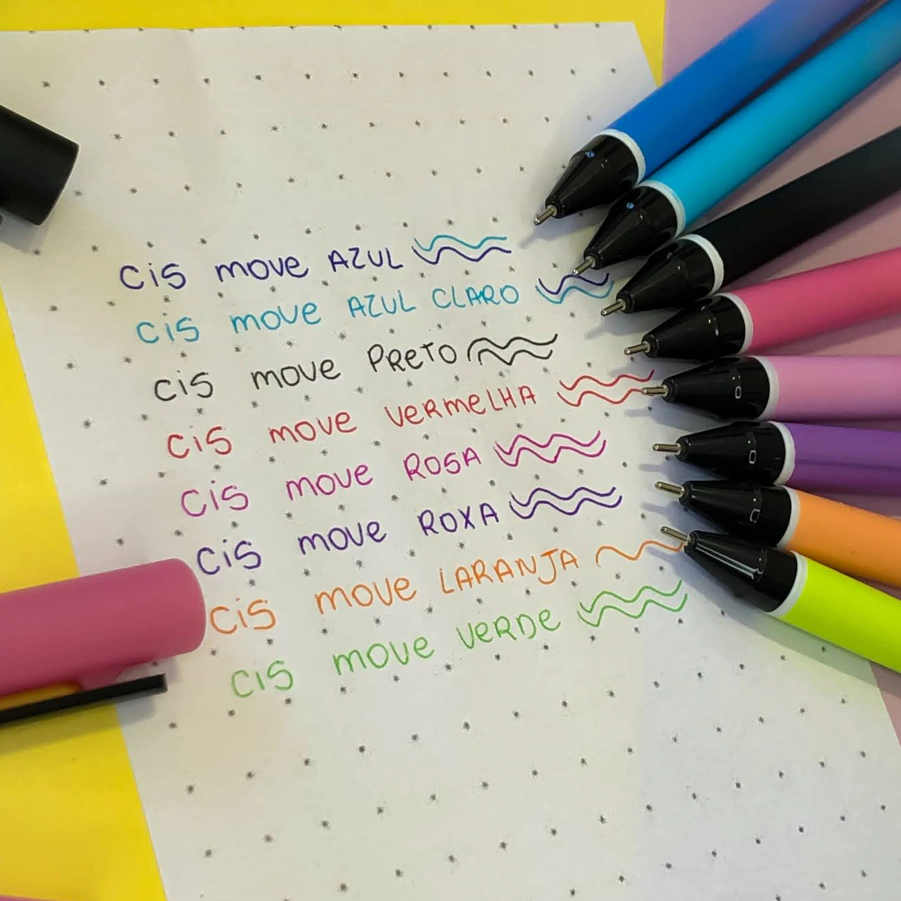 cis move AZUL
cis move AZUL CLARO
cis move PRETO
cis move VERMELHA
cis move ROSA
cis move ROXA
cis move LARANJA
cis move VERDE